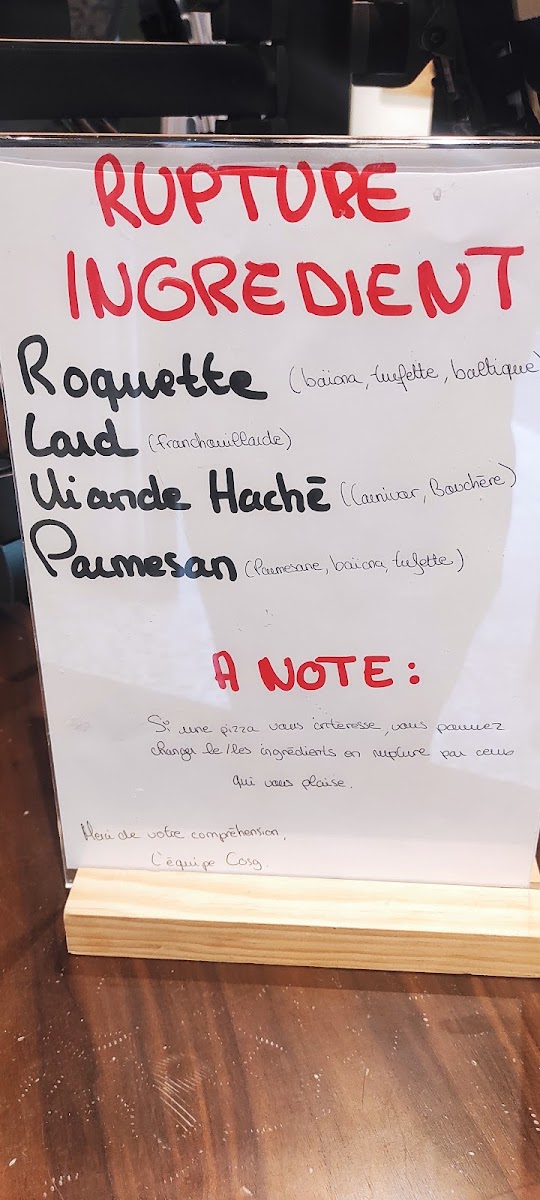 RUPTURE
INGREDIENT
Roquette (baïona, tufette, baltique)
Lard (franchouillarde)
Viande Haché (Carnivor, Bouchère)
Parmesan (Parmesane, baïona, tufette)
A NOTE :
Si une pizza vous intéresse, vous pouvez
changer le/les ingrédients en rupture par ceux
qui vous plaise.
Merci de votre compréhension,
L'équipe Cosg.